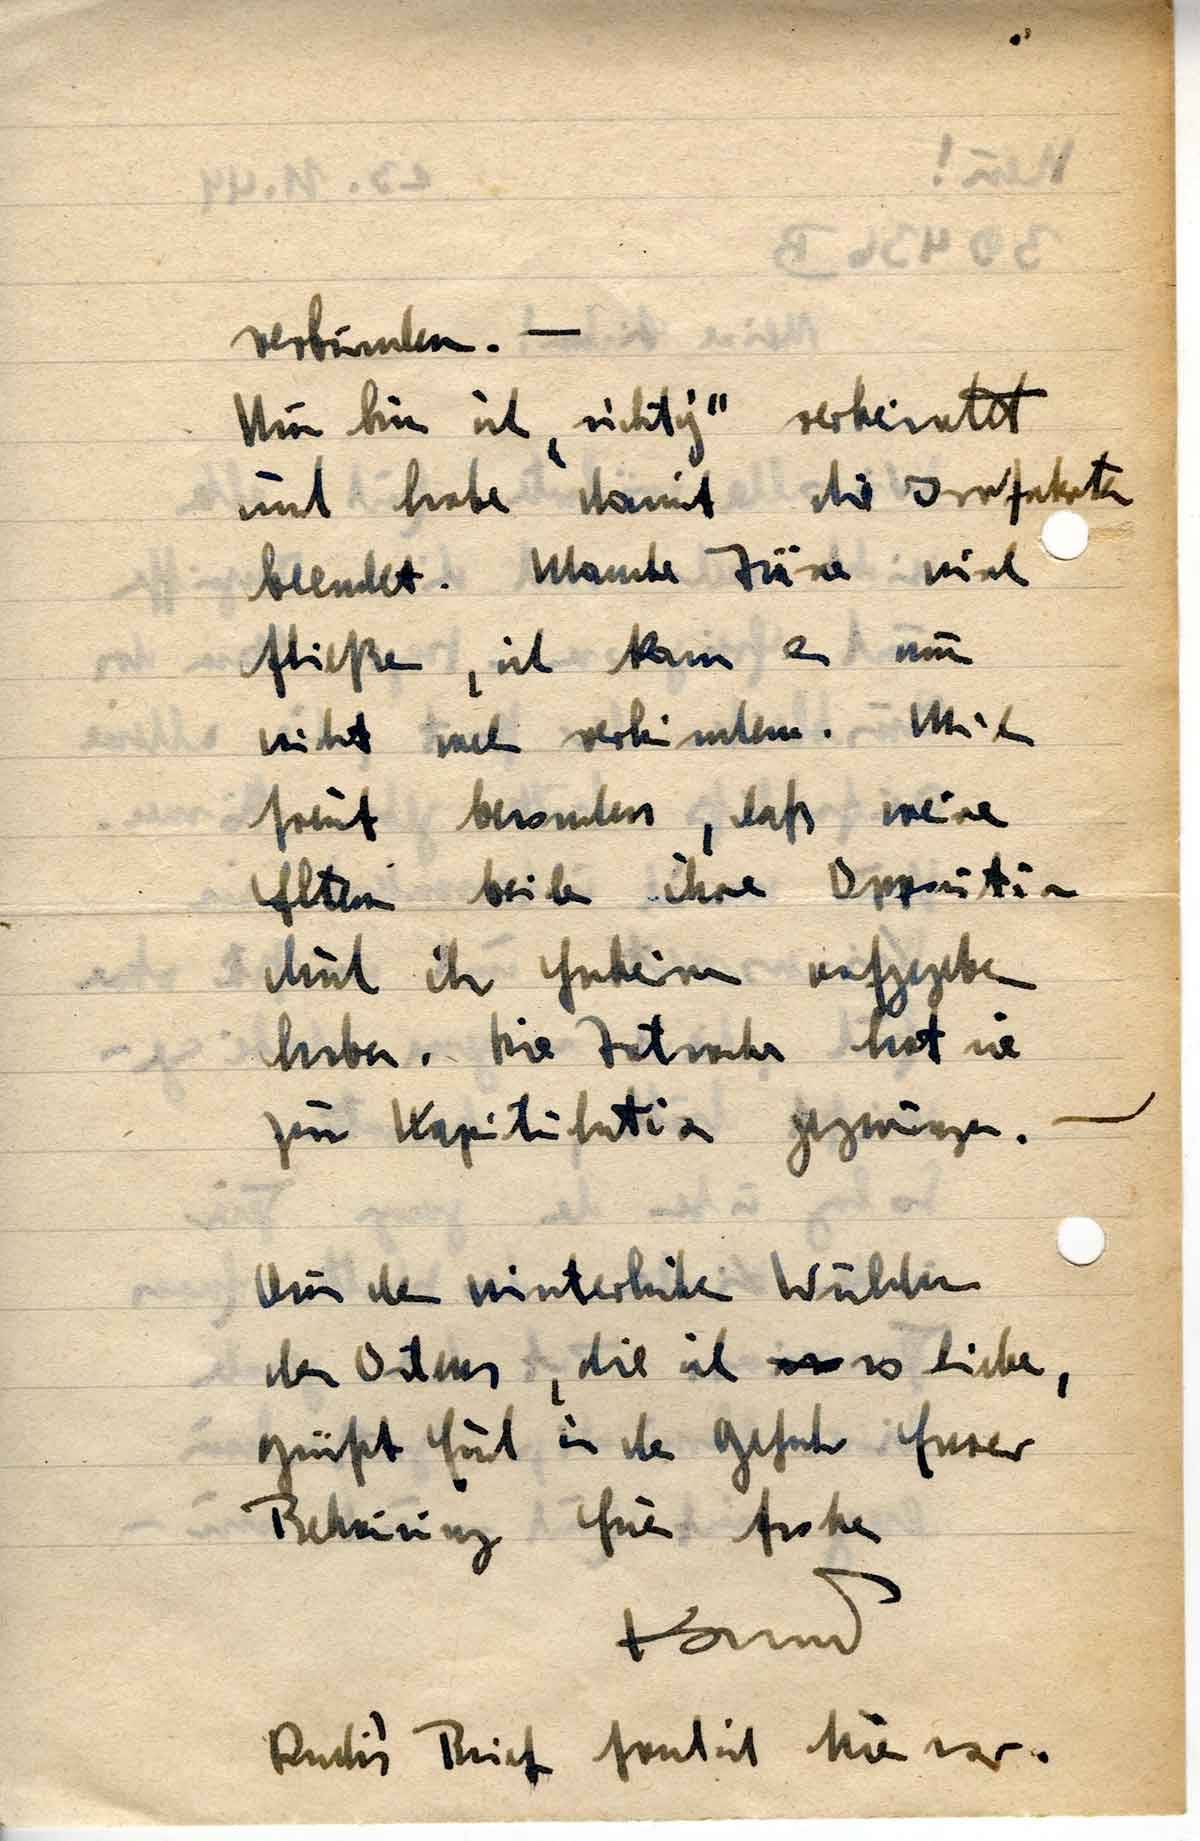 verbunden. —
Nun bin ich „richtig“ verheiratet
und habe damit die Irrfahrten
beendet. Manche Träne wird
fließen, ich kann es nun
nicht mehr verhindern. Mich
freut besonders, daß meine
Eltern beide ihre Opposition
durch ihr aufgegeben
haben. Die Tatsache hat sie
zur Kapitulation gezwungen. —
Aus den winterlichen Wäldern
des Ostens, die ich so liebe,
grüßt Euch in der Gefahr Eurer
Betreuung Euer froher
Rudi's Brief fand ich hier vor.